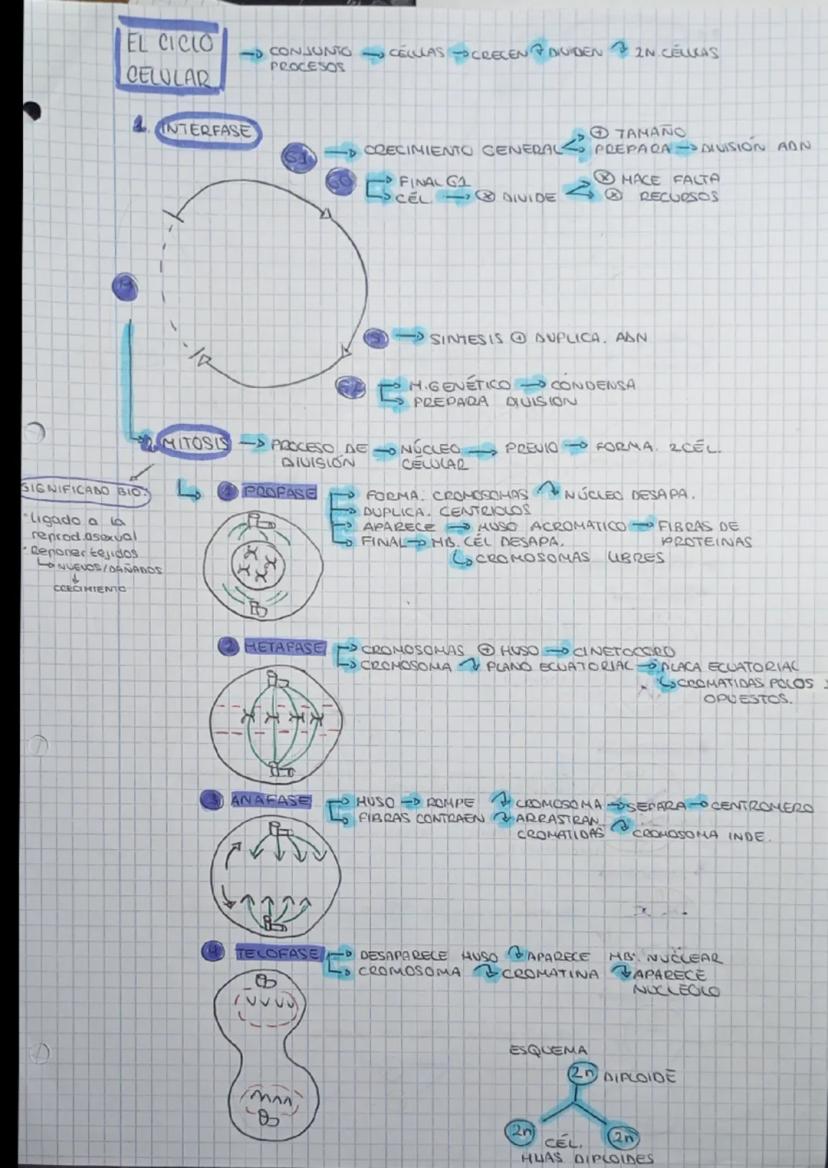 EL CICLO
CELULAR
→ CONJUNTO → CÉLLAS → CRECEN ↷ DIVIDEN ↷ 2N. CÉLLAS
PROCESOS
1. INTERFASE
G1 → CRECIMIENTO GENERAL
⊕ TAMAÑO
PREPARA → DIVISIÓN ADN
G0
FINAL G1
CÉL → ⊗ DIVIDE
⊗ HACE FALTA
⊗ RECURSOS
S → SINTESIS ⊕ DUPLICA. ADN
G2
M.GENÉTICO → CONDENSA
PREPARA DIVISIÓN
M
2. MITOSIS → PROCESO DE → NÚCLEO → PREVIO → FORMA. 2CÉL.
DIVISIÓN CELULAR
SIGNIFICADO BIO:
· Ligado a la
reprod.asexual
· Reponer tejidos
↳ NUEVOS/DAÑADOS
↓
CRECIMIENTO
1 PROFASE
FORMA. CROMOSOMAS ↷ NÚCLEO DESAPA.
DUPLICA. CENTRIOLOS
APARECE → HUSO ACROMATICO → FIBRAS DE
PROTEINAS
FINAL → MB. CÉL DESAPA.
↳ CROMOSOMAS LIBRES
2 METAFASE
CROMOSOMAS ⊕ HUSO → CINETOCORO
CROMOSOMA ↷ PLANO ECUATORIAL → PLACA ECUATORIAL
↳ CROMATIDAS POLOS
OPUESTOS.
3 ANAFASE
HUSO → ROMPE ↷ CROMOSOMA → SEPARA → CENTROMERO
FIBRAS CONTRAEN ↷ ARRASTRAN
CROMATIDAS ↷ CROMOSOMA INDE.
4 TELOFASE
DESAPARECE HUSO ↷ APARECE MB. NUCLEAR
CROMOSOMA ↷ CROMATINA ↷ APARECE
NUCLEOLO
ESQUEMA
2n DIPLOIDE
2n
2n
CÉL.
HIJAS DIPLOIDES